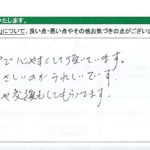 いたします。
について、良い点・悪い点やその他お気づきの点がござい
で心やすくして頂いています。
さしいのがうれしいです。
や交換もしてもらってます。